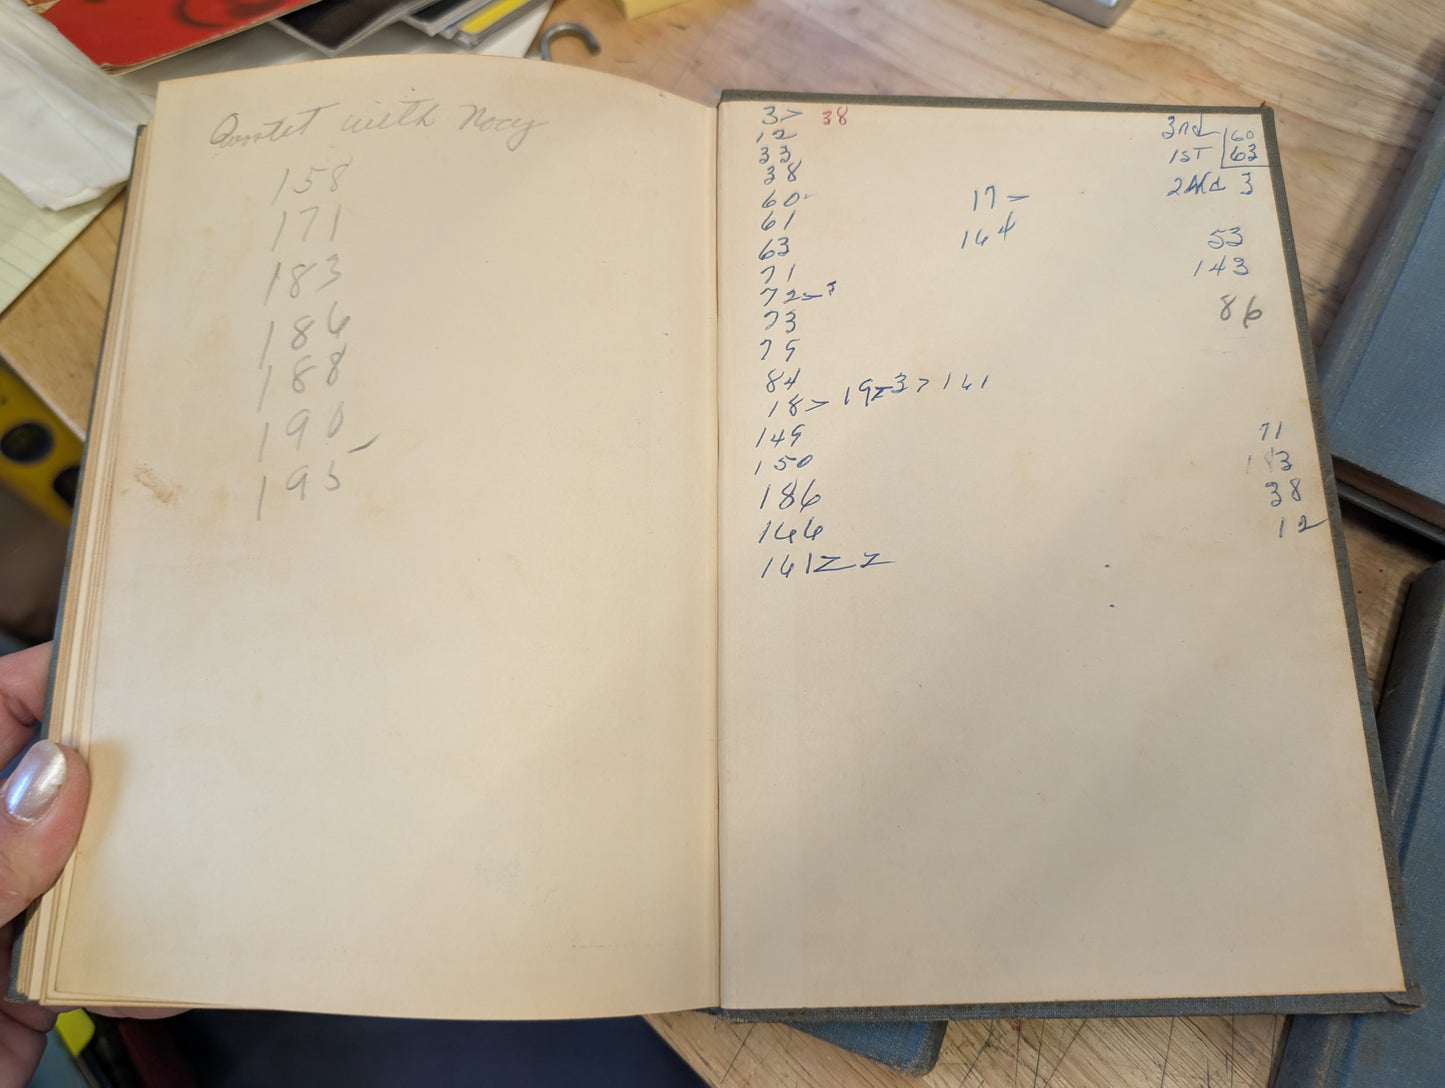 Quartet with Nocy
158
171
183
186
188
190
195
3> 38
12
33
38
60-
61
63
71
72-3
73
79
84
18> 19z3> 161
149
150
186
166
161z z
17-
164
3rd 60
1ST 63
2Nd 3
53
143
86
71
183
38
12